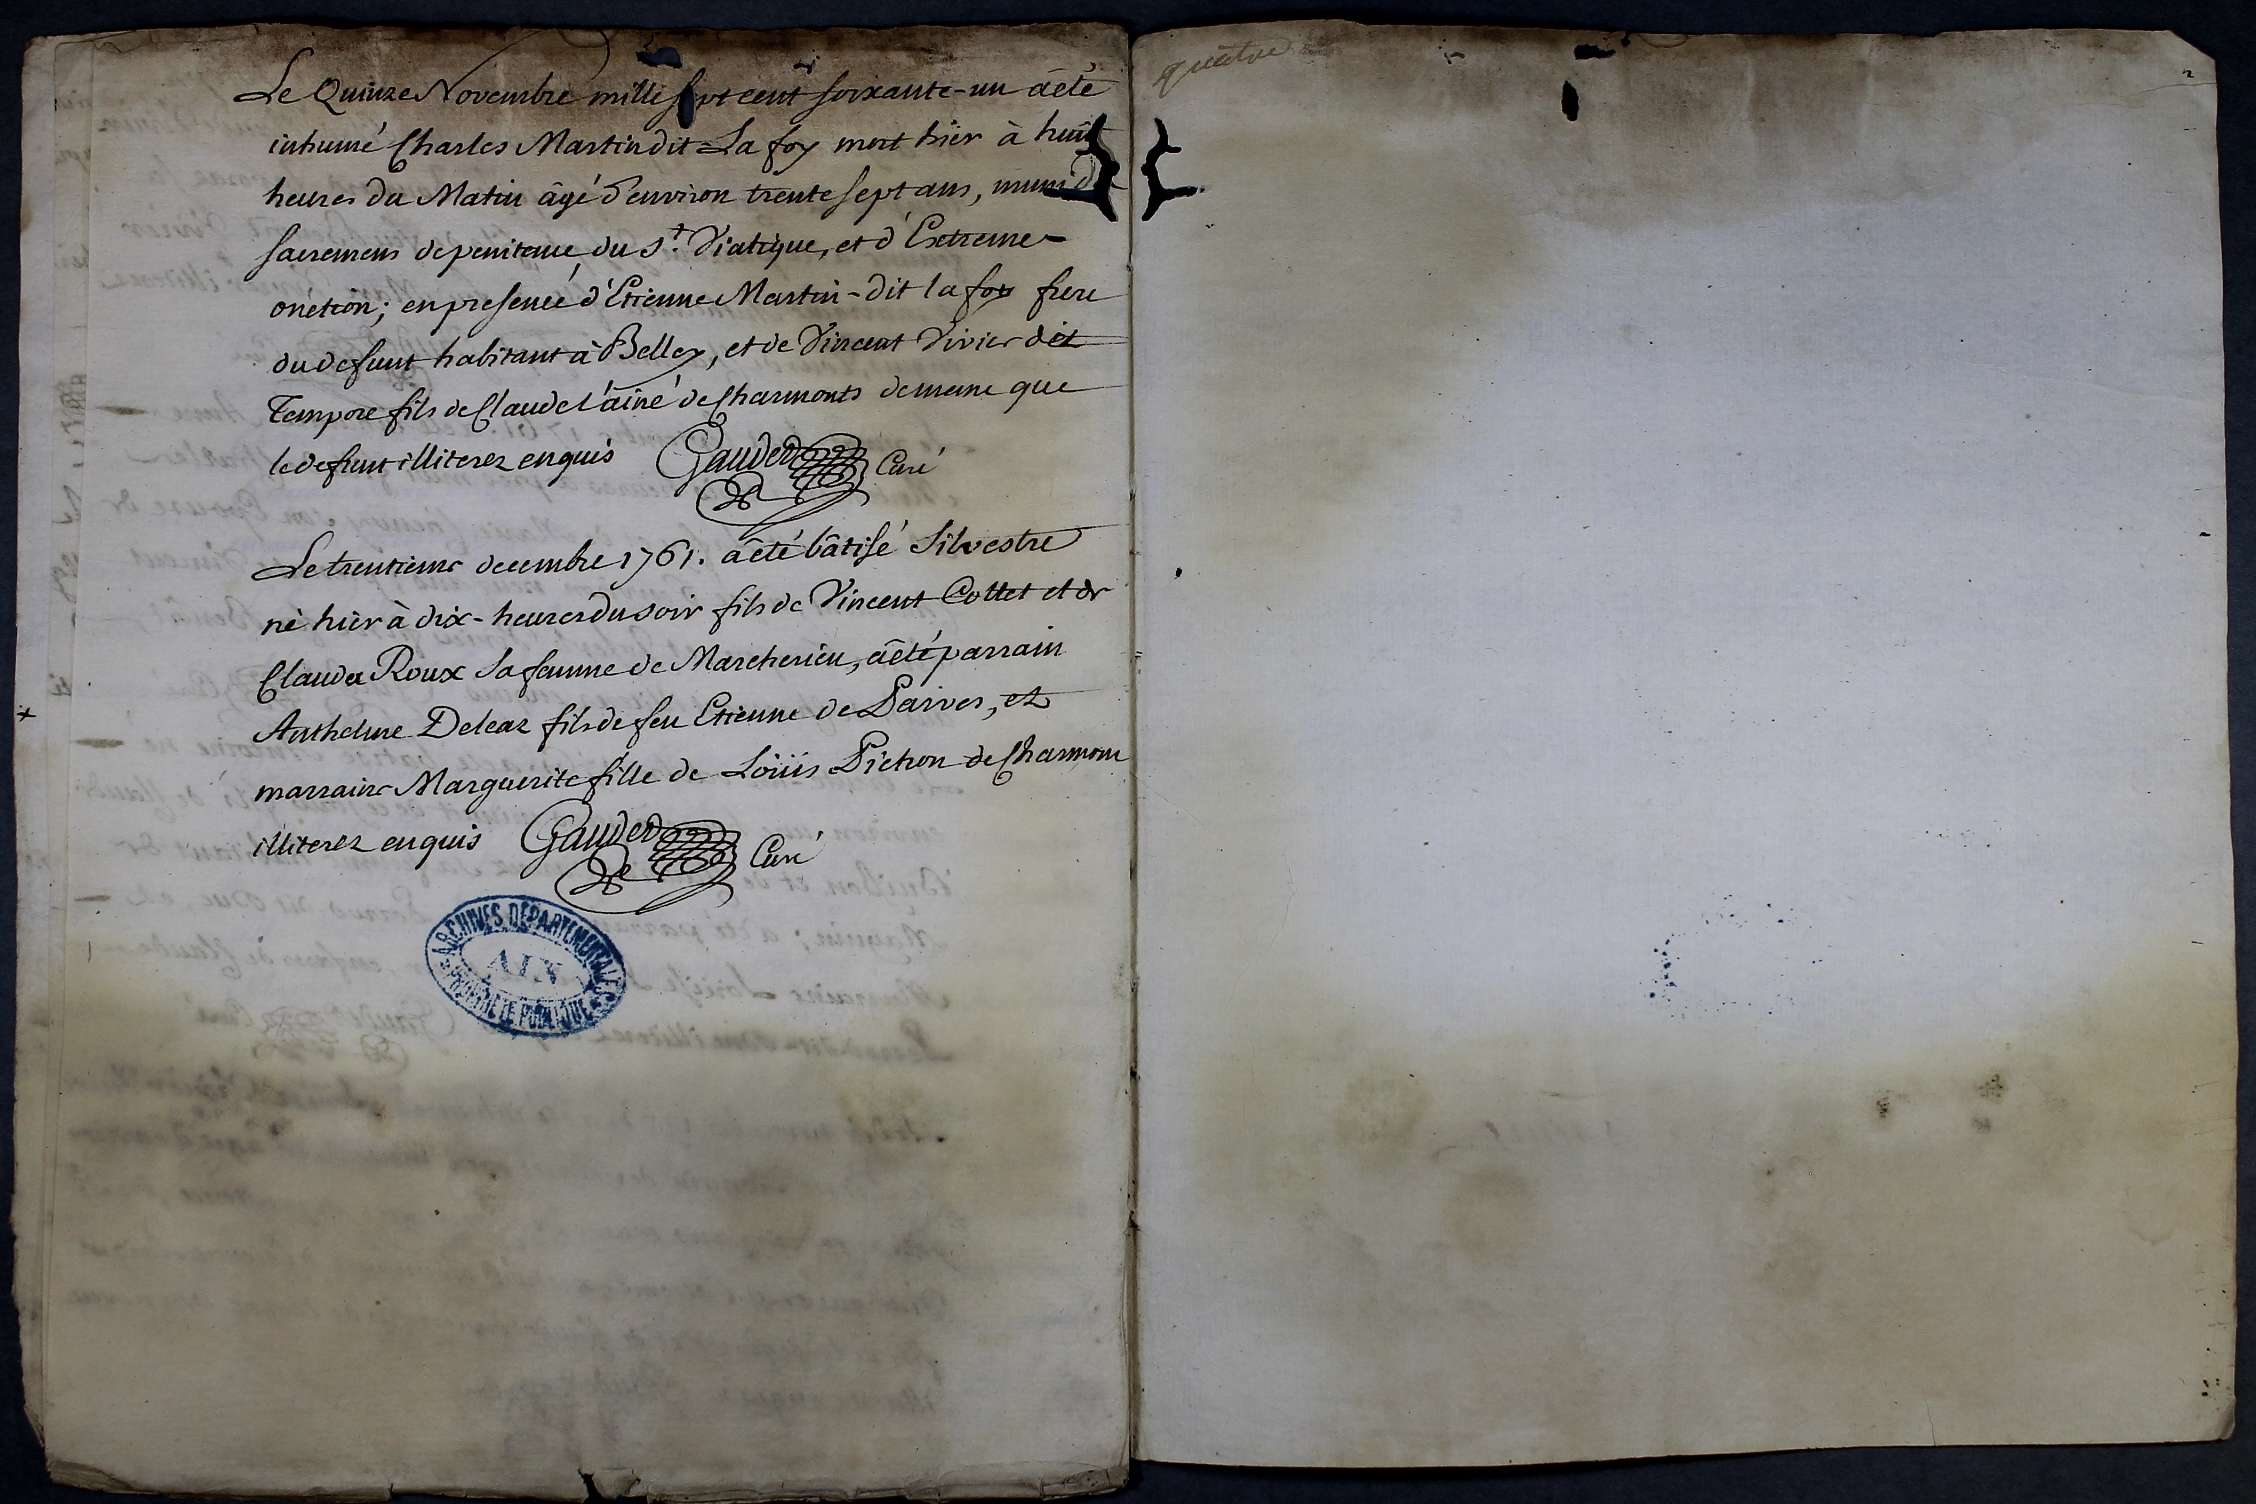 Le Quinze Novembre mille sept cent soixante-un a été
inhumé Charles Martin dit La foy mort hier à huit
heures du Matin âgé d'environ trente sept ans, muni d
sacremens de penitence du St. Viatique, et d'Extreme-
onction; en presence d'Etienne Martin-dit la foy frere
du defunt habitant à Belley, et de Vincent Vivier dit
Tempore fils de Claude l'ainé de Charmonts de meme que
le defunt illiterez enquis Gauded Curé
Le trentieme decembre 1761. a été bâtisé Silvestre
né hier à dix-heures du soir fils de Vincent Collet et de
Clauda Roux sa femme de Marcherieu, a été parrain
Anthelme Deleaz fils de feu Etienne de Parves, et
marraine Marguerite fille de Loüis Pichon de Charmont
illiterez enquis Gauded Curé
ARCHIVES DÉPARTEMENTALES
AIN
PROPRIÉTÉ PUBLIQUE
quatre